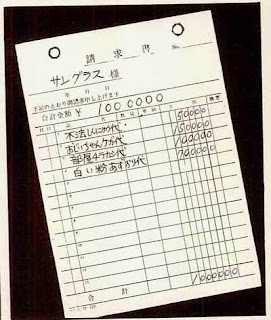 請求書 No.
サングラス 様
年 月 日
下記のとおり御請求申し上げます
合計金額 ¥1000000
不法しんにゅう代 50000
おじいちゃんケガ代 150000
部屋チラカシ代 100000
白い粉あずかり代 700000
合計 1000000